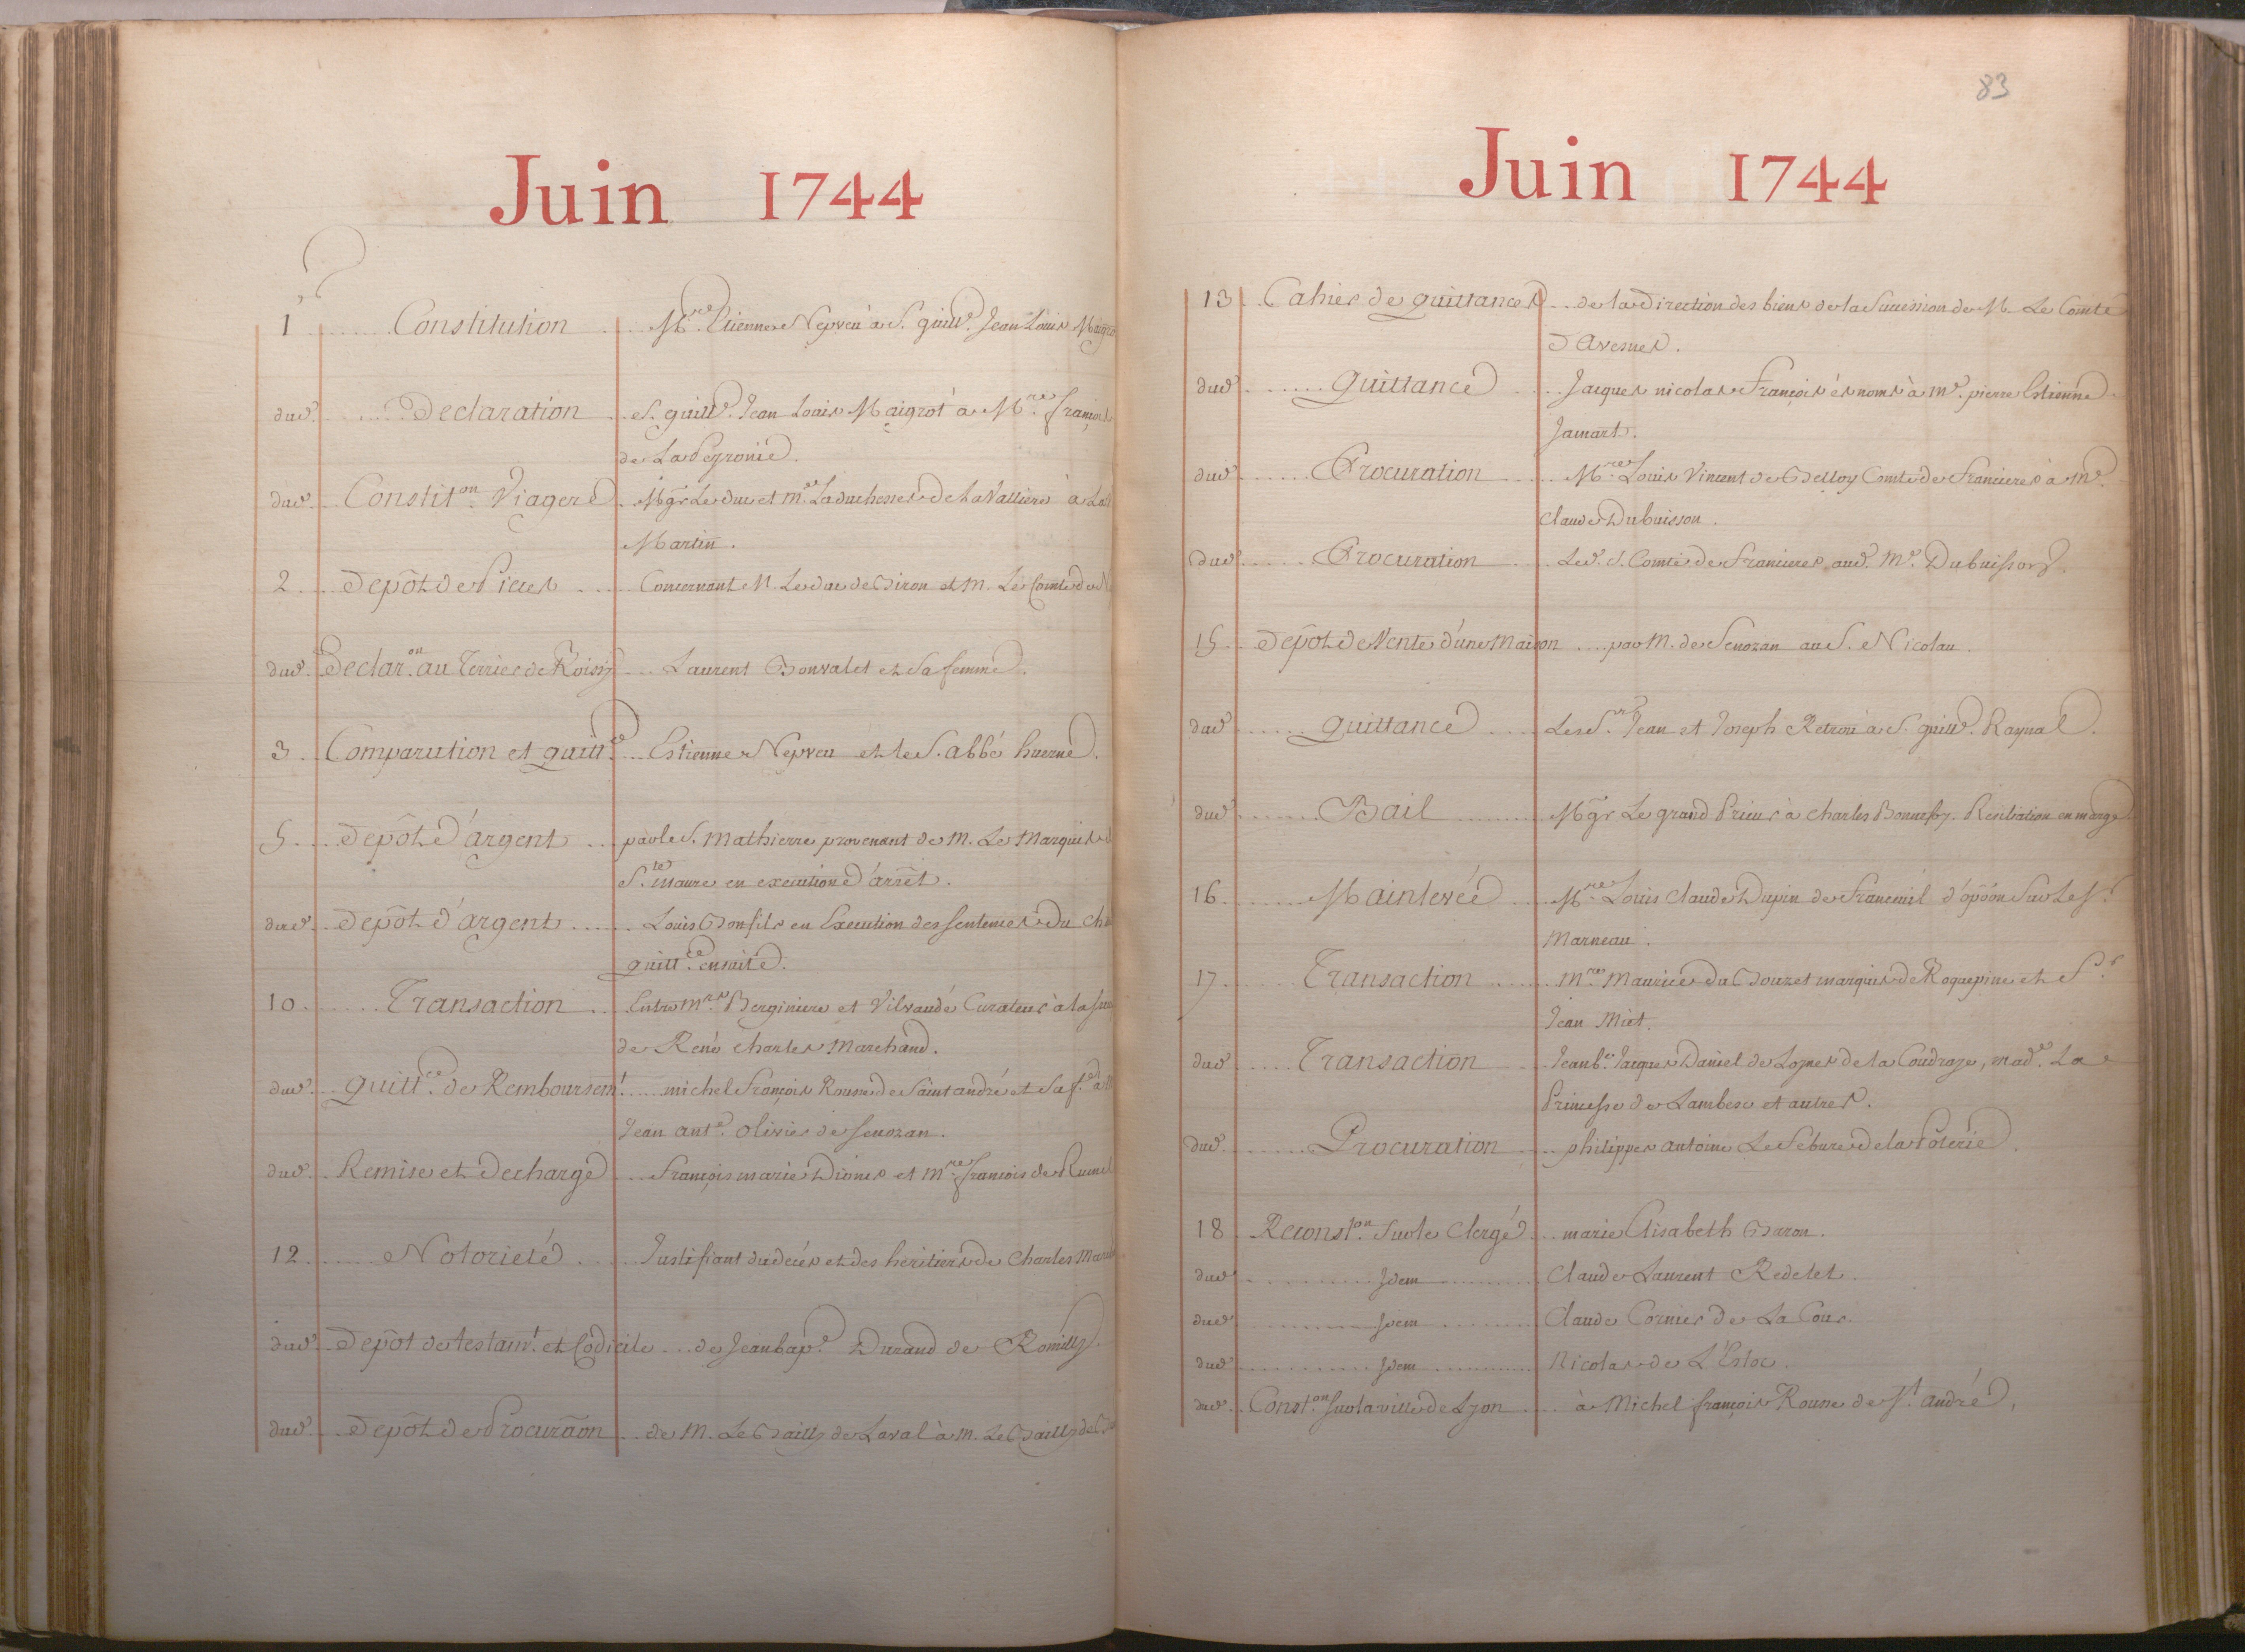 Juin 1744
1 Constitution Mre. Etienne Nepveu à S. guille. Jean Louis Maigrot
dud. Declaration S. guille. Jean Louis Maigrot à Mre. françois
de La Peyronie.
dud. Constiton. Viagere Mgr. Le duc et me. La duchesse de la Valliere à
Martin.
2 Depôt de Pieces Concernant M. Le duc de Biron et M. Le Comte de
dud. Declaron. au Terrier de Roissy Laurent Bonvalet et Sa femme.
3 Comparution et quittce. Estienne Nepveu et le S. abbé huerne.
5 Depôt d'argent par le S. Mathierre provenant de M. Le Marquis de
Ste. Maure en execution d'arrêt.
dud. Depôt d'argent Louis Bonfils en Execution des Sentences du
quittce. ensuite.
10 Transaction Entre Mrs. Berginiere et Vilvaudé Curateur à la
de René Charles Marchand.
dud. quittce. de Remboursemt. michel François Rousse de Saint andré et Sa fe. à
Jean ante. olivier de Senozan.
dud. Remise et decharge François marie Dionis et Mre. françois de
12 Notorieté Justifiant du decès et des heritiers de Charles
dud. Depôt de testamt. et Codicile de Jean bape. Durand de Romilly.
dud. Depôt de Procuraõn de M. Le Bailly de Laval à M. Le Bailly de
83
Juin 1744
13 Cahier de quittances de la direction des biens de la Succession de M. Le Comte
D'Avesnes.
dud. quittance Jacques nicolas François ès noms à me. pierre Estienne
Jamart.
dud. Procuration Mre. Louis Vincent de Belloy Comte de Francieres à me.
Claude Dubuisson.
dud. Procuration Led. S. Comte de Francieres aud. Me. Dubuisson.
15 Depôt de Vente d'une Maison par M. de Senozan au S. Nicolau.
dud. quittance Les Srs. Jean et Joseph à S. guille. Raynal.
dud. Bail Mgr. Le grand Prieur à Charles Résiliation en marge
16 Mainlevée Mre. Louis Claude Dupin de Franceuil d'opõon Sur Le Sr.
Marneau.
17 Transaction mre. Maurice du Bouzet marquis de Roquepine et Sr.
Jean Miet.
dud. Transaction Jean be. Jacques Daniel de Loynes de la Coudraye, made. La
Princesse de Lambesc et autres.
dud. Procuration philippes antoine Le Febure de la Poterie.
18 Reconston. Sur le Clergé marie Elisabeth Baron.
dud. Idem Claude Laurent Redelet.
dud. Idem Claude Cornier de La Cour.
dud. Idem Nicolas de L'Estoc.
dud. Conston. Sur la ville de Lyon à Michel françois Rousse de St. andré.